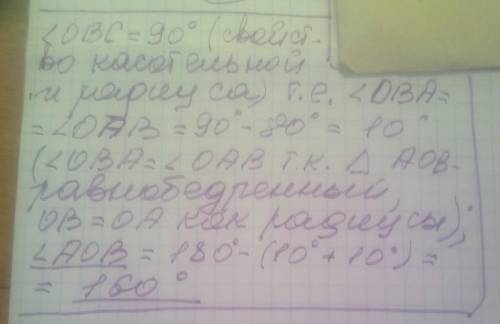 ∠OBC = 90° (свойст-
во касательной
и радиуса) т.е. ∠OBA =
= ∠OAB = 90° - 80° = 10°
(∠OBA = ∠OAB т.к. △ AOB -
равнобедренный,
OB = OA как радиусы);
∠AOB = 180° - (10° + 10°) =
= 160°